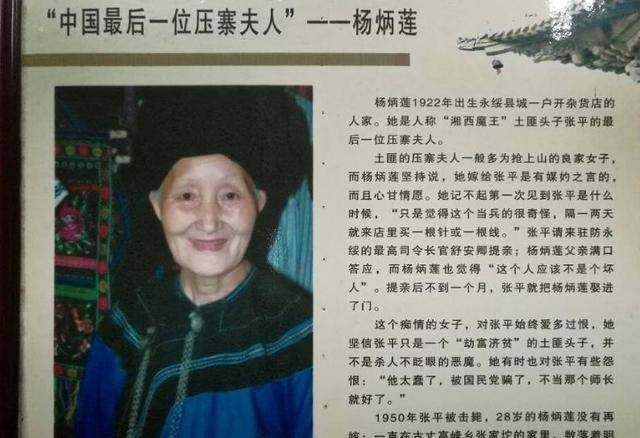 “中国最后一位压寨夫人”——杨炳莲
杨炳莲1922年出生永绥县城一户开杂货店的
人家。她是人称“湘西魔王”土匪头子张平的最
后一位压寨夫人。
土匪的压寨夫人一般多为抢上山的良家女子，
而杨炳莲坚持说，她嫁给张平是有媒妁之言的，
而且心甘情愿。她记不起第一次见到张平是什么
时候，“只是觉得这个当兵的很奇怪，隔一两天
就来店里买一根针或一根线。”张平请来驻防永
绥的最高司令长官舒安卿提亲；杨炳莲父亲满口
答应，而杨炳莲也觉得“这个人应该不是个坏
人”。提亲后不到一个月，张平就把杨炳莲娶进
了门。
这个痴情的女子，对张平始终爱多过恨，她
坚信张平只是一个“劫富济贫”的土匪头子，并
不是杀人不眨眼的恶魔。她有时也对张平有些怨
恨：“他太蠢了，被国民党骗了，不当那个师长
就好了。”
1950年张平被击毙，28岁的杨炳莲没有再
嫁；一直在古丈高峰乡张家坨的家里，数落着明